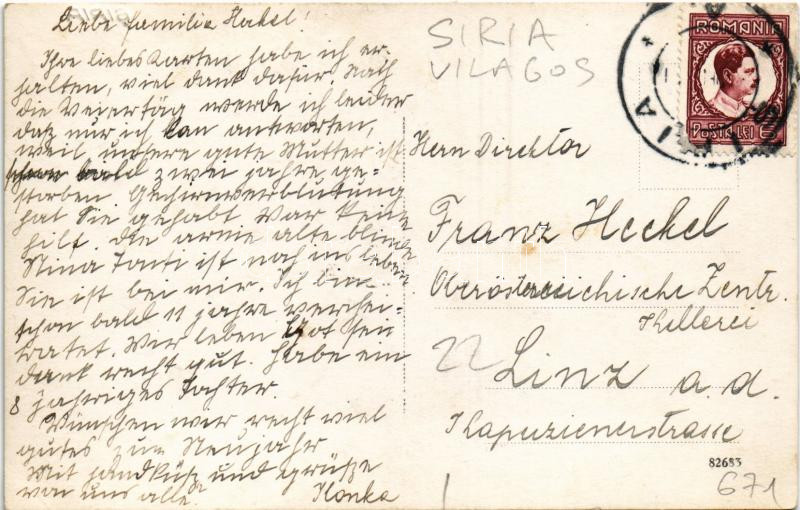 Liebe Familie Heckel!
Ihre liebes Karten habe ich er-
halten, viel dank dafür. Nach
die Veiertäg werde ich leider
daß nur ich kan antworten,
weil unsere gute Mutter ist
schon bald zwei jahre ge-
storben Gehirnverblutung
hat Sie gehabt War keine
hilf. die arme alte blinde
Nina Tanti ist noch ins leben
Sie ist bei mir. Ich bin
schon bald 11 jahre verhei-
ratet. Wir leben Got sen
dank recht gut. Habe ein
8 jähriges Tochter.
Wünschen wir recht viel
gutes zum Neujahr
Mit handküß und grüße
von uns alle. Ilonka
SIRIA
VILAGOS
ROMANIA
POSTA LEI 6
SIRIA
Herrn Direktor
Franz Heckel
Oberösterreichische Zentr.
Kellerei
22
Linz a. d.
Kapuzienerstrasse
82683
671